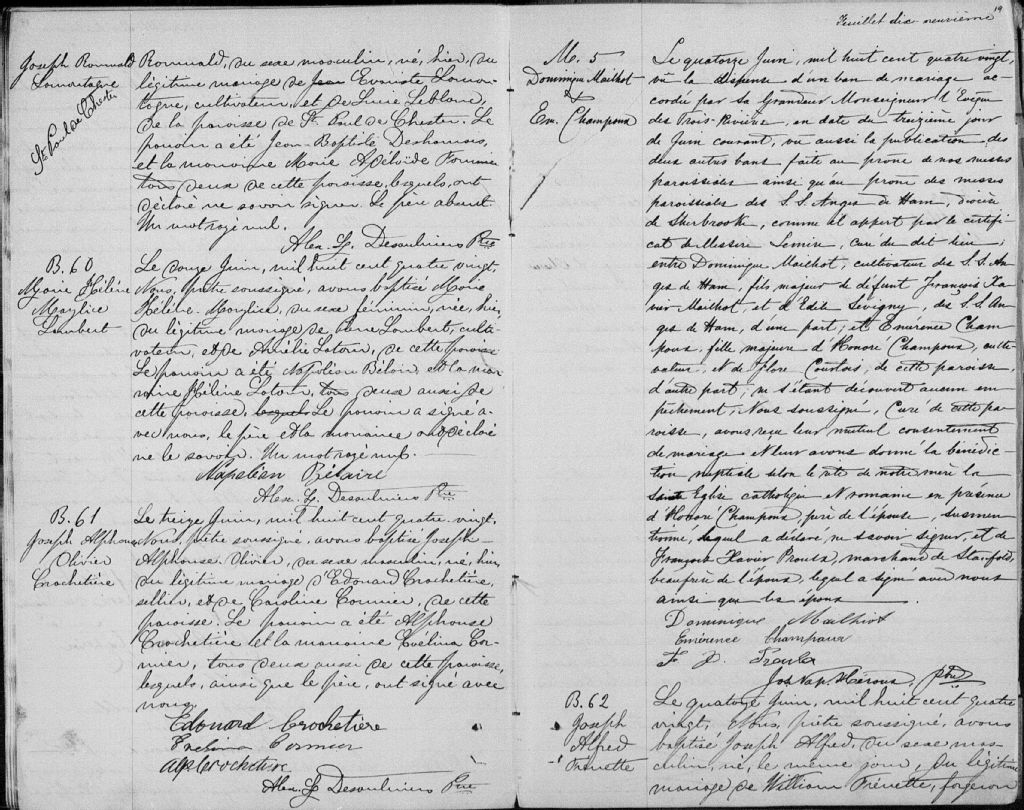 Joseph Romuald
Lamontagne
St Paul de Chester
Romuald, du sexe masculin, né, hier, du
légitime mariage de Jean Evariste Lamon-
tagne, cultivateur, et de Lucie Leblanc,
de la paroisse de St. Paul de Chester. Le
parrain a été Jean-Baptiste Desharnais,
et la marraine Marie Adélaïde
tous deux de cette paroisse, lesquels, ont
déclaré ne savoir signer. Le père absent.
Un mot rayé nul.
Alex. L. Desaulniers Ptre
B. 60
Marie Hélène
Margélice
Lambert
Le douze Juin, mil huit cent quatre vingt,
Nous, prêtre soussigné, avons baptisé Marie
Hélène, du sexe féminin, née, hier,
du légitime mariage de Lambert, culti-
vateur, et de Amélie Latour, de cette paroisse
Le parrain a été Napoléon Béliveau, et la mar-
raine Hélène Latour, tous deux aussi de
cette paroisse, lesquels Le parrain a signé a-
vec nous, le père et la marraine ont déclaré
ne le savoir. Un mot rayé nul.
Alex. L. Desaulniers Ptre
B. 61
Joseph Alphonse
Olivier
Crochetière
Le treize Juin, mil huit cent quatre vingt,
Nous, prêtre soussigné, avons baptisé Joseph-
Alphonse Olivier, du sexe masculin, né, hier,
du légitime mariage d'Edouard Crochetière,
sellier, et de Caroline Cormier, de cette
paroisse. Le parrain a été Alphonse
Crochetière et la marraine Evélina Cor-
mier, tous deux aussi de cette paroisse,
lesquels, ainsi que le père, ont signé avec
nous.
Edouard Crochetière
Evelina Cormier
Alp Crochetière
Alex. L. Desaulniers Ptre
Feuillet dix-neuvième 19
M. 5
Dominique Mailhot
&
Em. Champoux
Le quatorze Juin, mil huit cent quatre vingt,
vu la dispense d'un ban de mariage ac-
cordée par Sa Grandeur Monseigneur l'Evêque
des Trois-Rivières, en date du treizième jour
de Juin courant, vu aussi la publication des
deux autres bans faite au prône de nos messes
paroissiales ainsi qu'au prône des messes
paroissiales des S.S. Anges de Ham, diocèse
de Sherbrooke, comme il appert par le certifi-
cat de Messire Lemire, curé du dit lieu;
entre Dominique Mailhot, cultivateur des S.S. An-
ges de Ham, fils majeur de défunt François Xa-
vier Mailhot, et d'Edith Sévigny, des S.S. An-
ges de Ham, d'une part; et Emérence Cham-
poux, fille majeure d'Honoré Champoux, culti-
vateur, et de Flore Courtois, de cette paroisse,
d'autre part; ne s'étant découvert aucun em-
pêchement, Nous soussigné, Curé de cette pa-
roisse, avons reçu leur mutuel consentement
de mariage et leur avons donné la bénédic-
tion nuptiale selon le rite de notre mère la
Sainte Eglise catholique et romaine en présence
d'Honoré Champoux, père de l'épouse, susmen-
tionné, lequel a déclaré ne savoir signer, et de
François Xavier Proulx, marchand de Stanfold,
beaufrère de l'époux, lequel a signé avec nous
ainsi que les époux.
Dominique Mailhot
Emérence Champoux
F X Proulx
Jos Nap. Héroux Ptre
B. 62
Joseph
Alfred
Frenette
Le quatorze Juin, mil huit cent quatre
vingt, Nous, prêtre soussigné, avons
baptisé Joseph Alfred, du sexe mas-
culin, né, le même jour, du légitime
mariage de William Frénette, forgeron